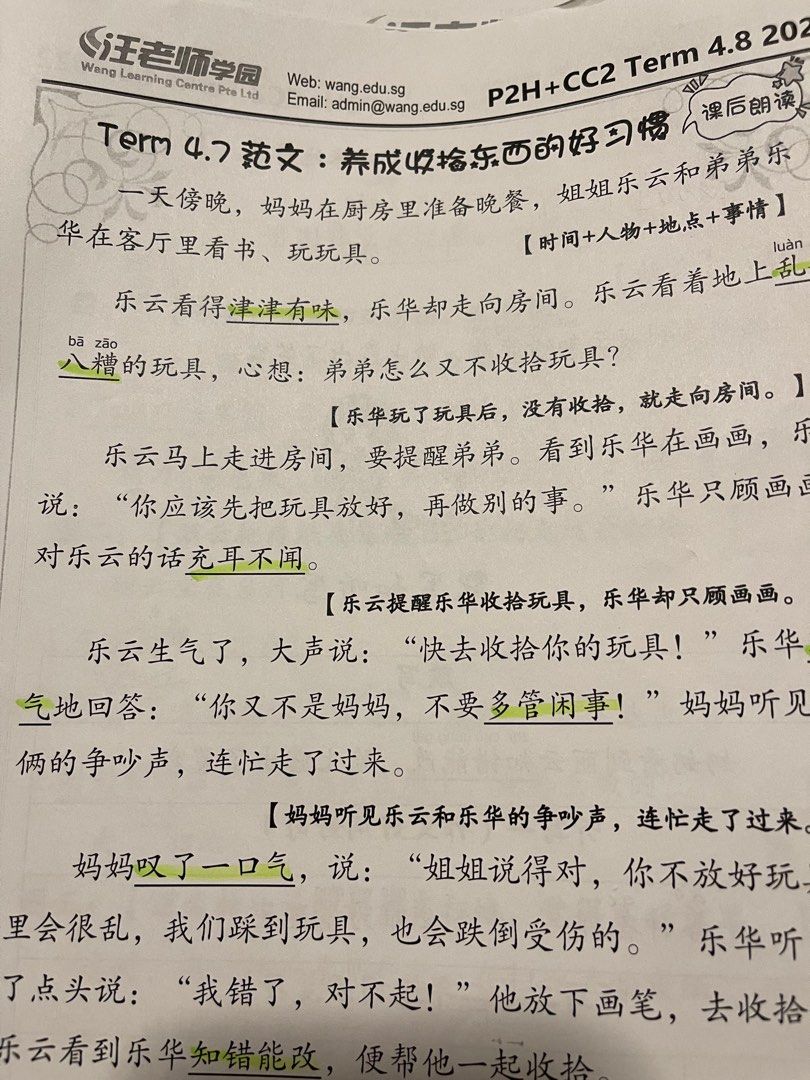 汪老师学园
Wang Learning Centre Pte Ltd
Web: wang.edu.sg
Email: admin@wang.edu.sg
P2H+CC2 Term 4.8 202
课后朗读
Term 4.7 范文：养成收拾东西的好习惯
一天傍晚，妈妈在厨房里准备晚餐，姐姐乐云和弟弟乐
华在客厅里看书、玩玩具。
【时间+人物+地点+事情】
luàn
乐云看得津津有味，乐华却走向房间。乐云看着地上乱
bā zāo
八糟的玩具，心想：弟弟怎么又不收拾玩具？
【乐华玩了玩具后，没有收拾，就走向房间。】
乐云马上走进房间，要提醒弟弟。看到乐华在画画，乐
说：“你应该先把玩具放好，再做别的事。”乐华只顾画画
对乐云的话充耳不闻。
【乐云提醒乐华收拾玩具，乐华却只顾画画。
乐云生气了，大声说：“快去收拾你的玩具！”乐华
气地回答：“你又不是妈妈，不要多管闲事！”妈妈听见
俩的争吵声，连忙走了过来。
【妈妈听见乐云和乐华的争吵声，连忙走了过来。
妈妈叹了一口气，说：“姐姐说得对，你不放好玩
里会很乱，我们踩到玩具，也会跌倒受伤的。”乐华听
了点头说：“我错了，对不起！”他放下画笔，去收拾
乐云看到乐华知错能改，便帮他一起收拾。